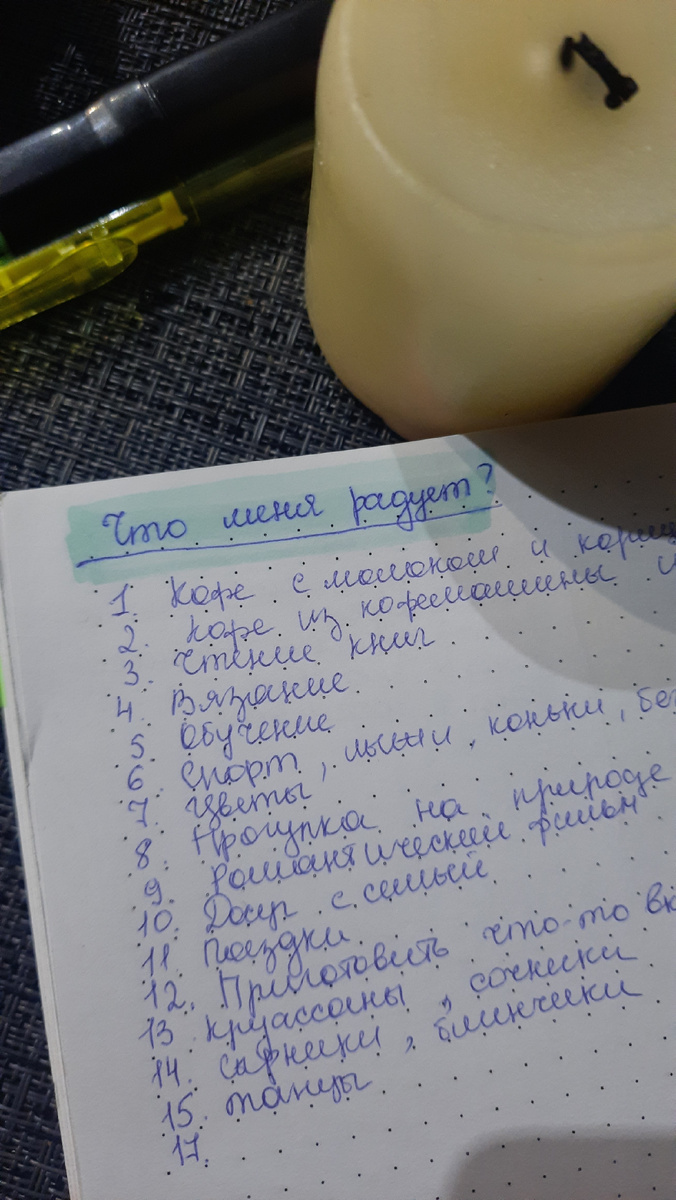 Что меня радует?
1 Кофе с молоком и кориц
2. Кофе из кофемашины и
3. Чтение книг
4. Вязание
5 Обучение
6 Спорт, лыжи, коньки, бе
7. Цветы
8 Прогулка на природе
9. Романтический фильм
10. Досуг с семьёй
11 Поездки
12. Приготовить что-то вк
13 Круассаны, сочники
14. Сырники, блинчики
15. Танцы
17.